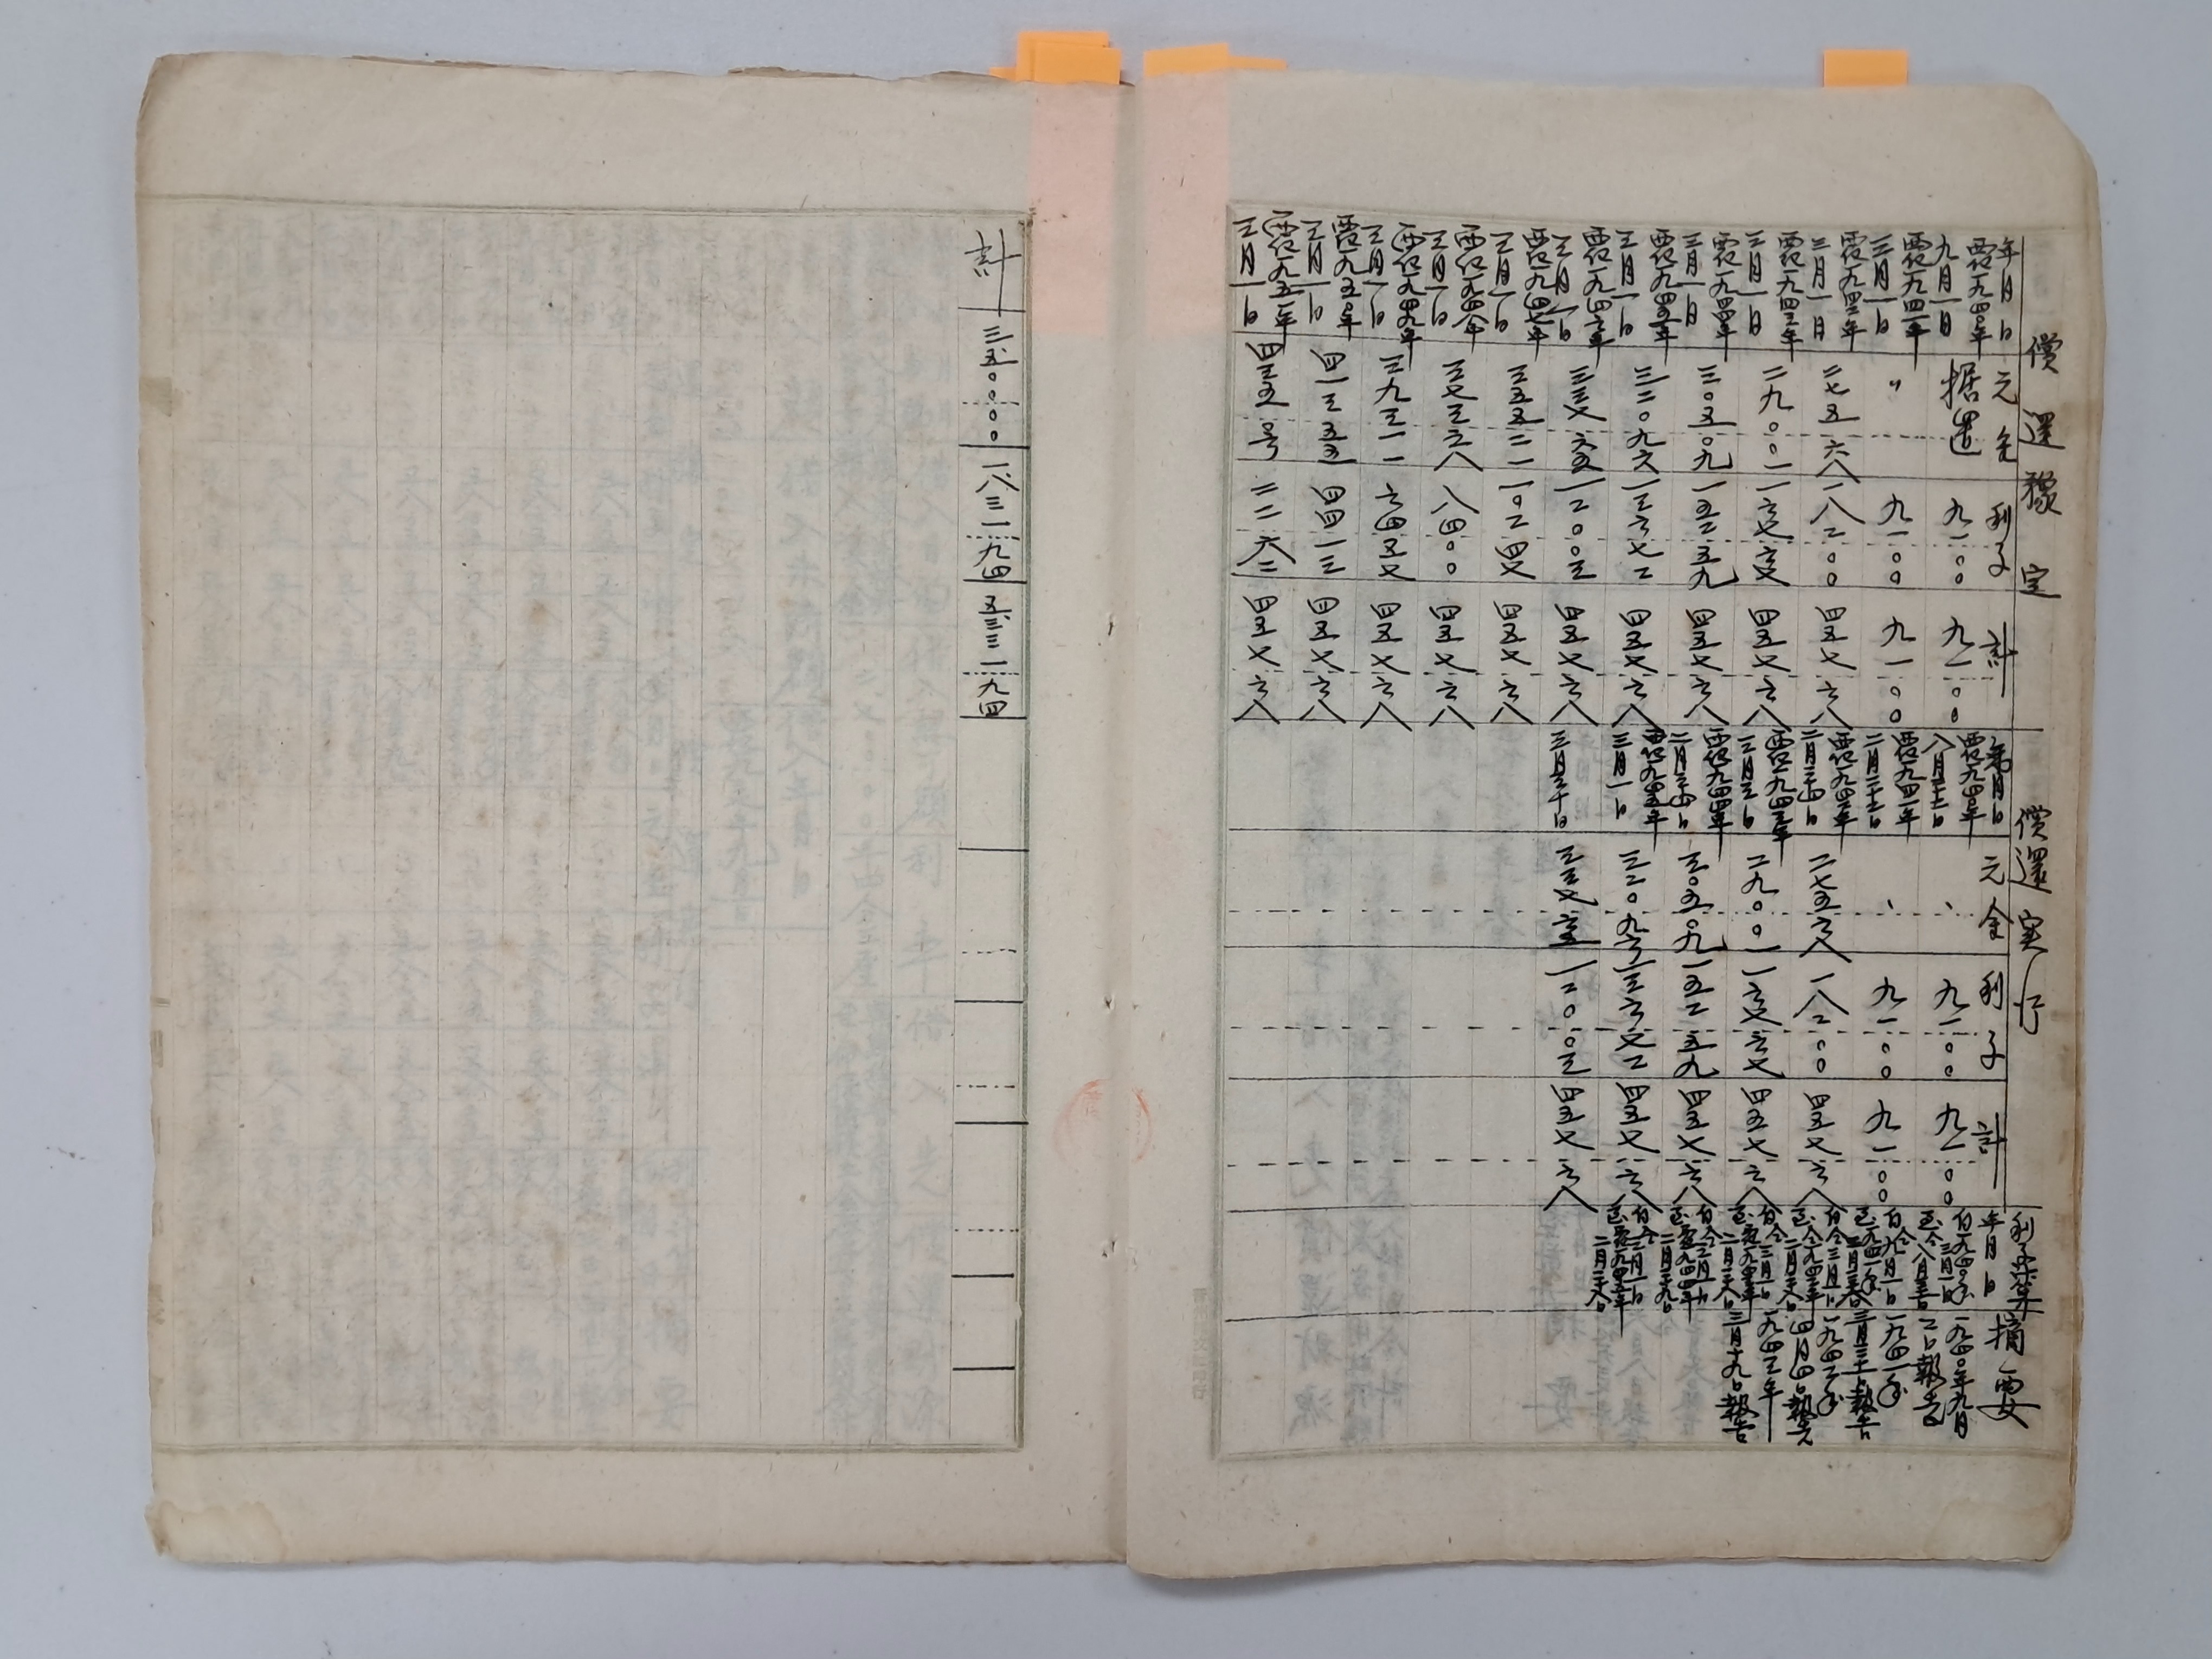 償還豫定
償還実行
利子計算
摘要
年月日
元金
利子
計
年月日
元金
利子
計
年月日
西紀一九四〇年
九月一日
据置
九一〇〇
九一〇〇
西紀一九四〇年
、
九一〇〇
九一〇〇
自一九四〇年
三月一日
一九四〇年九月
二日報告
西紀一九四一年
三月一日
〃
九一〇〇
九一〇〇
西紀一九四一年
、
九一〇〇
九一〇〇
自仝九月一日
一九四一年
三月三十一日報告
西紀一九四二年
三月一日
二七五六八
一八二〇〇
四五七六八
西紀一九四二年
二月二十四日
二七五六八
一八二〇〇
四五七六八
自仝三月一日
一九四二年
四月四日報告
西紀一九四三年
三月一日
二九〇〇一
一六七六七
四五七六八
西紀一九四三年
二九〇〇一
一六七六七
四五七六八
自仝三月一日
至西紀一九四三年
二月二十八日
一九四三年
三月十九日報告
西紀一九四四年
三月一日
三〇五〇九
一五二五九
四五七六八
西紀一九四四年
三〇五〇九
一五二五九
四五七六八
自仝三月一日
至西紀一九四四年
二月二十九日
西紀一九四五年
三月一日
三二〇九六
一三六七二
四五七六八
西紀一九四五年
三月一日
三二〇九六
一三六七二
四五七六八
自仝三月一日
至西紀一九四五年
二月二十八日
西紀一九四六年
三月一日
三三七六五
一二〇〇三
四五七六八
三月三十日
三三七六五
一二〇〇三
四五七六八
西紀一九四七年
三月一日
三五五二一
一〇二四七
四五七六八
西紀一九四八年
三月一日
三七三六八
八四〇〇
四五七六八
西紀一九四九年
三月一日
三九三一一
六四五七
四五七六八
西紀一九五〇年
三月一日
四一三五五
四四一三
四五七六八
西紀一九五一年
三月一日
四三五〇
二二六二
四五七六八
計
三五〇〇〇〇
一八三一九四
五三三一九四